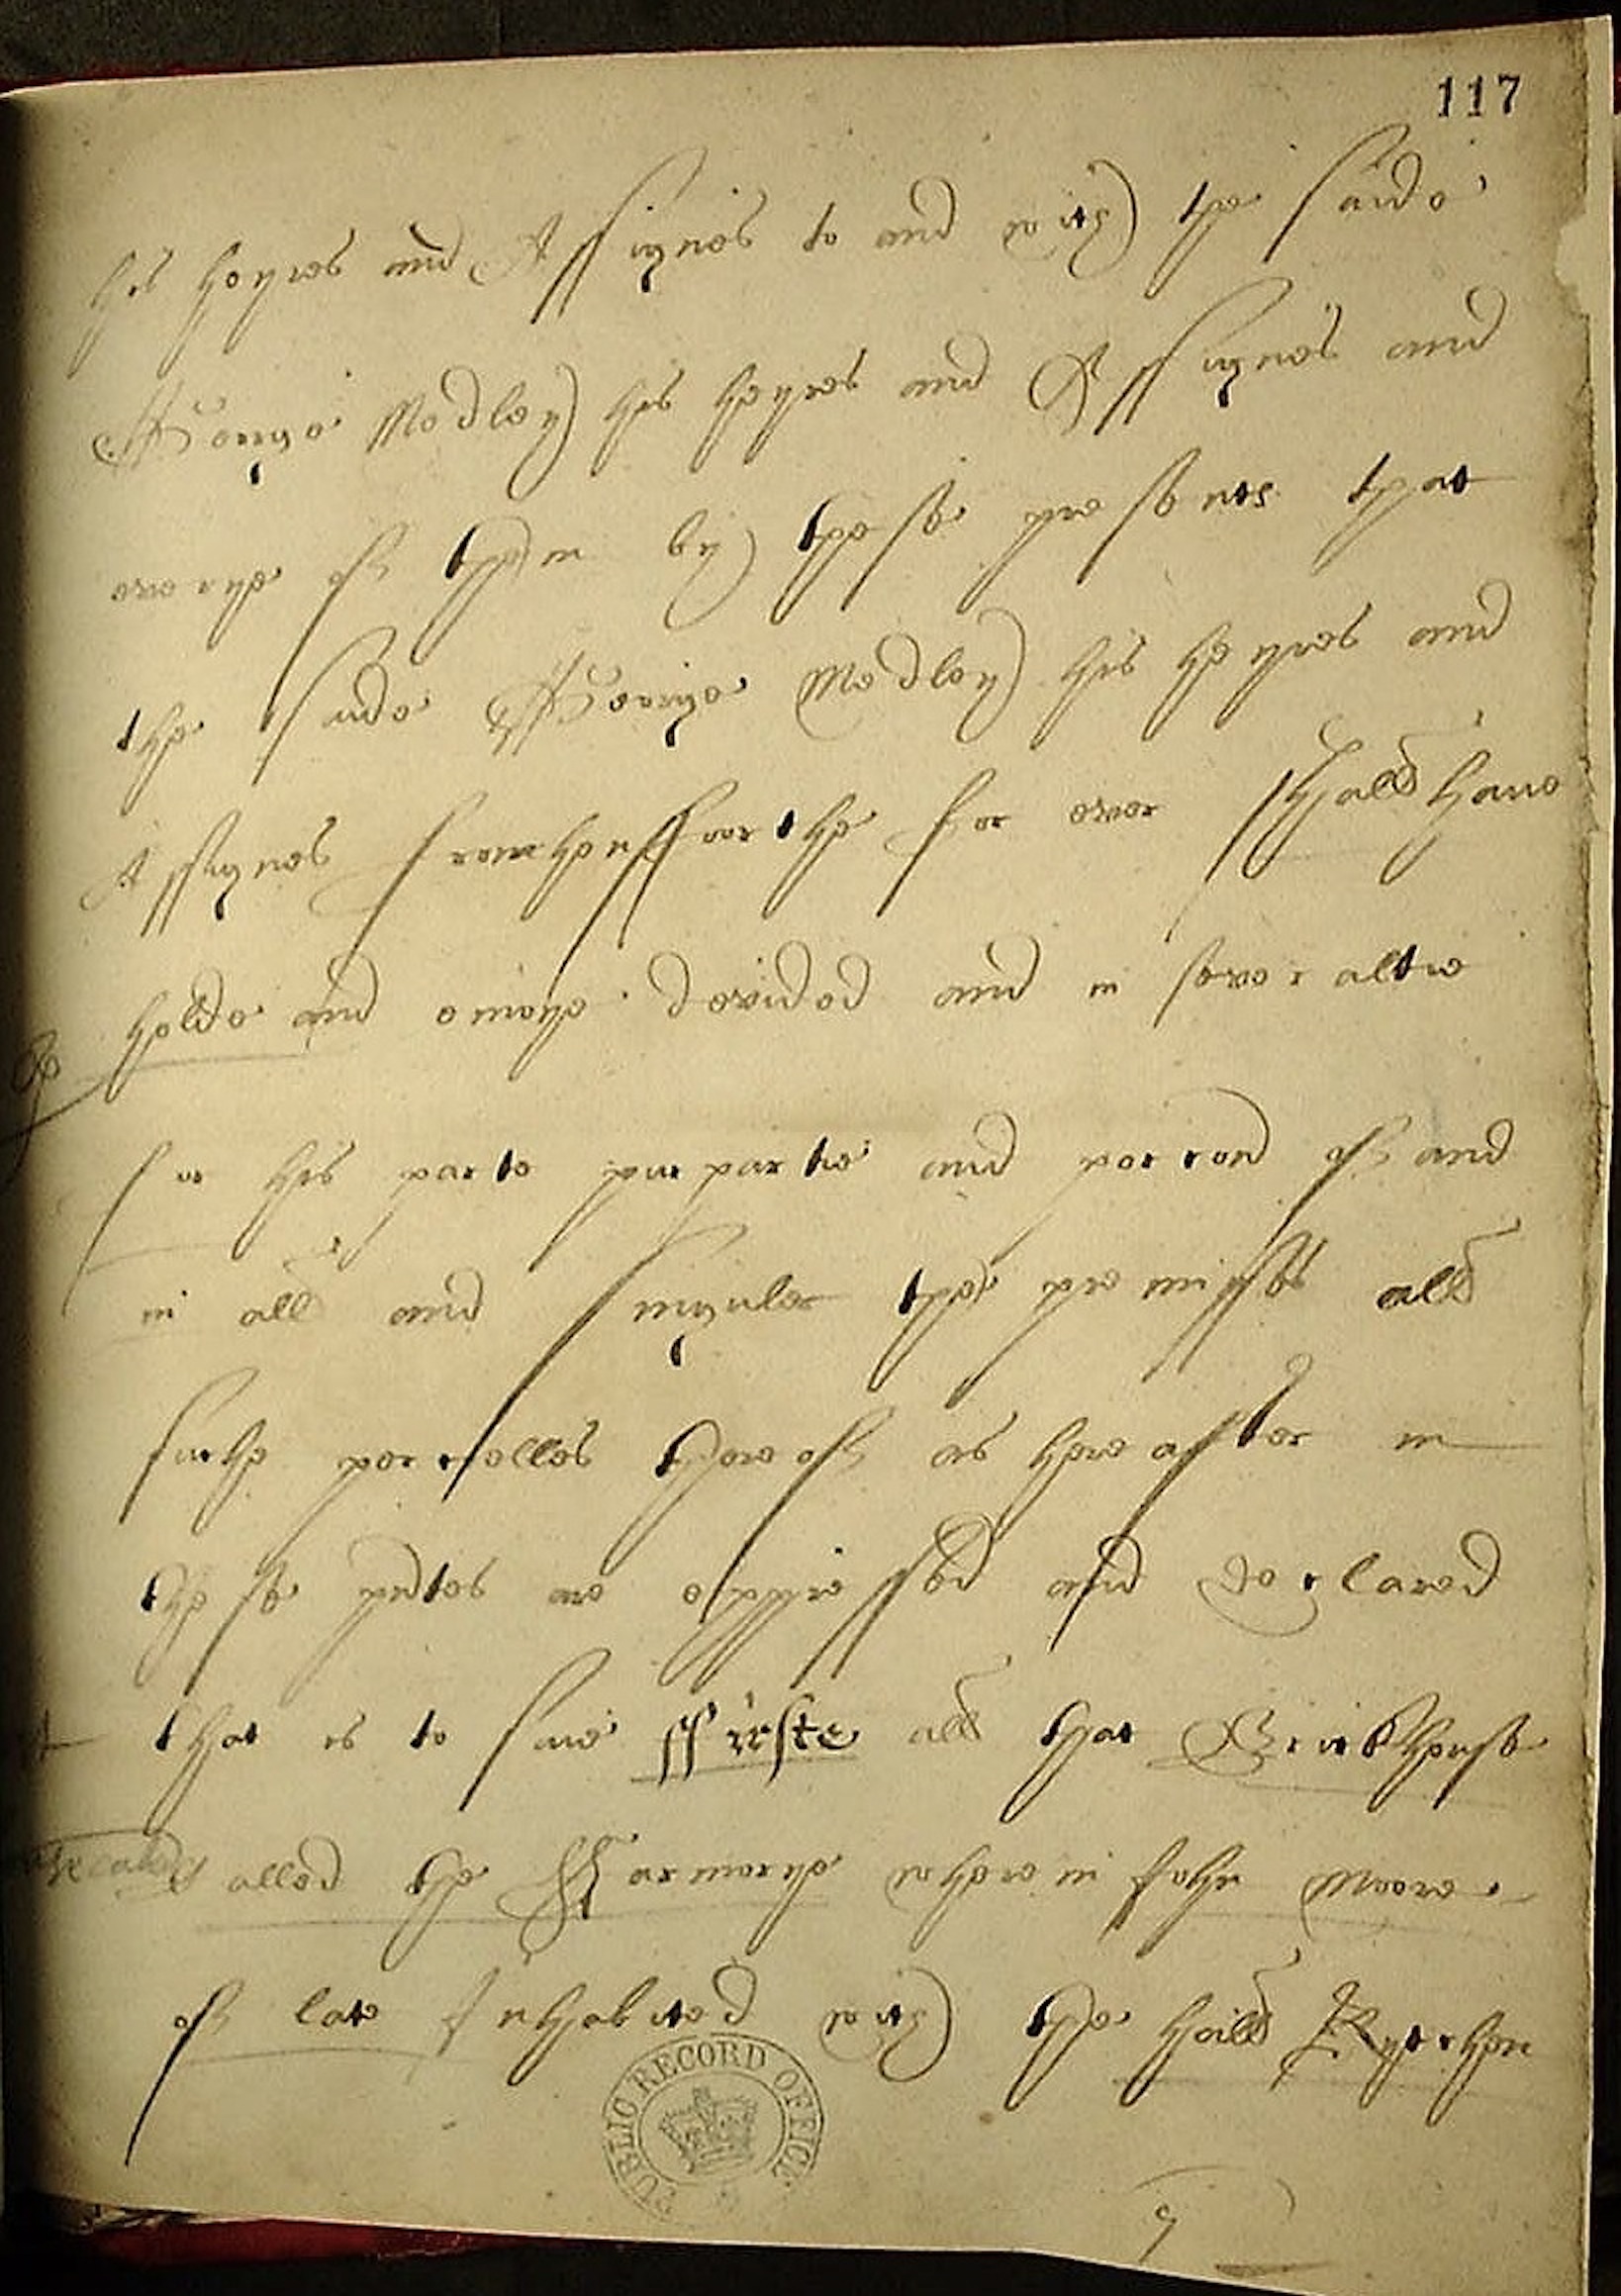 117
his heyres and Assignes to and with the saide
George Medley his heyres and Assignes and
everye of them by these presents that
the saide George Medley his heyres and
Assignes fromhensfoorthe for ever shall have
holde and enioye devided and in severaltie
for his parte purpartie and porcond of and
in all and singuler the premisses all
suche percelles thereof as hereafter in
these pntes are expressed and declared
that is to saie ffirste all that Brickhouse
called the Farmorye wherein John Moore
of late Inhabited with the hall Kytchen
PUBLIC RECORD OFFICE